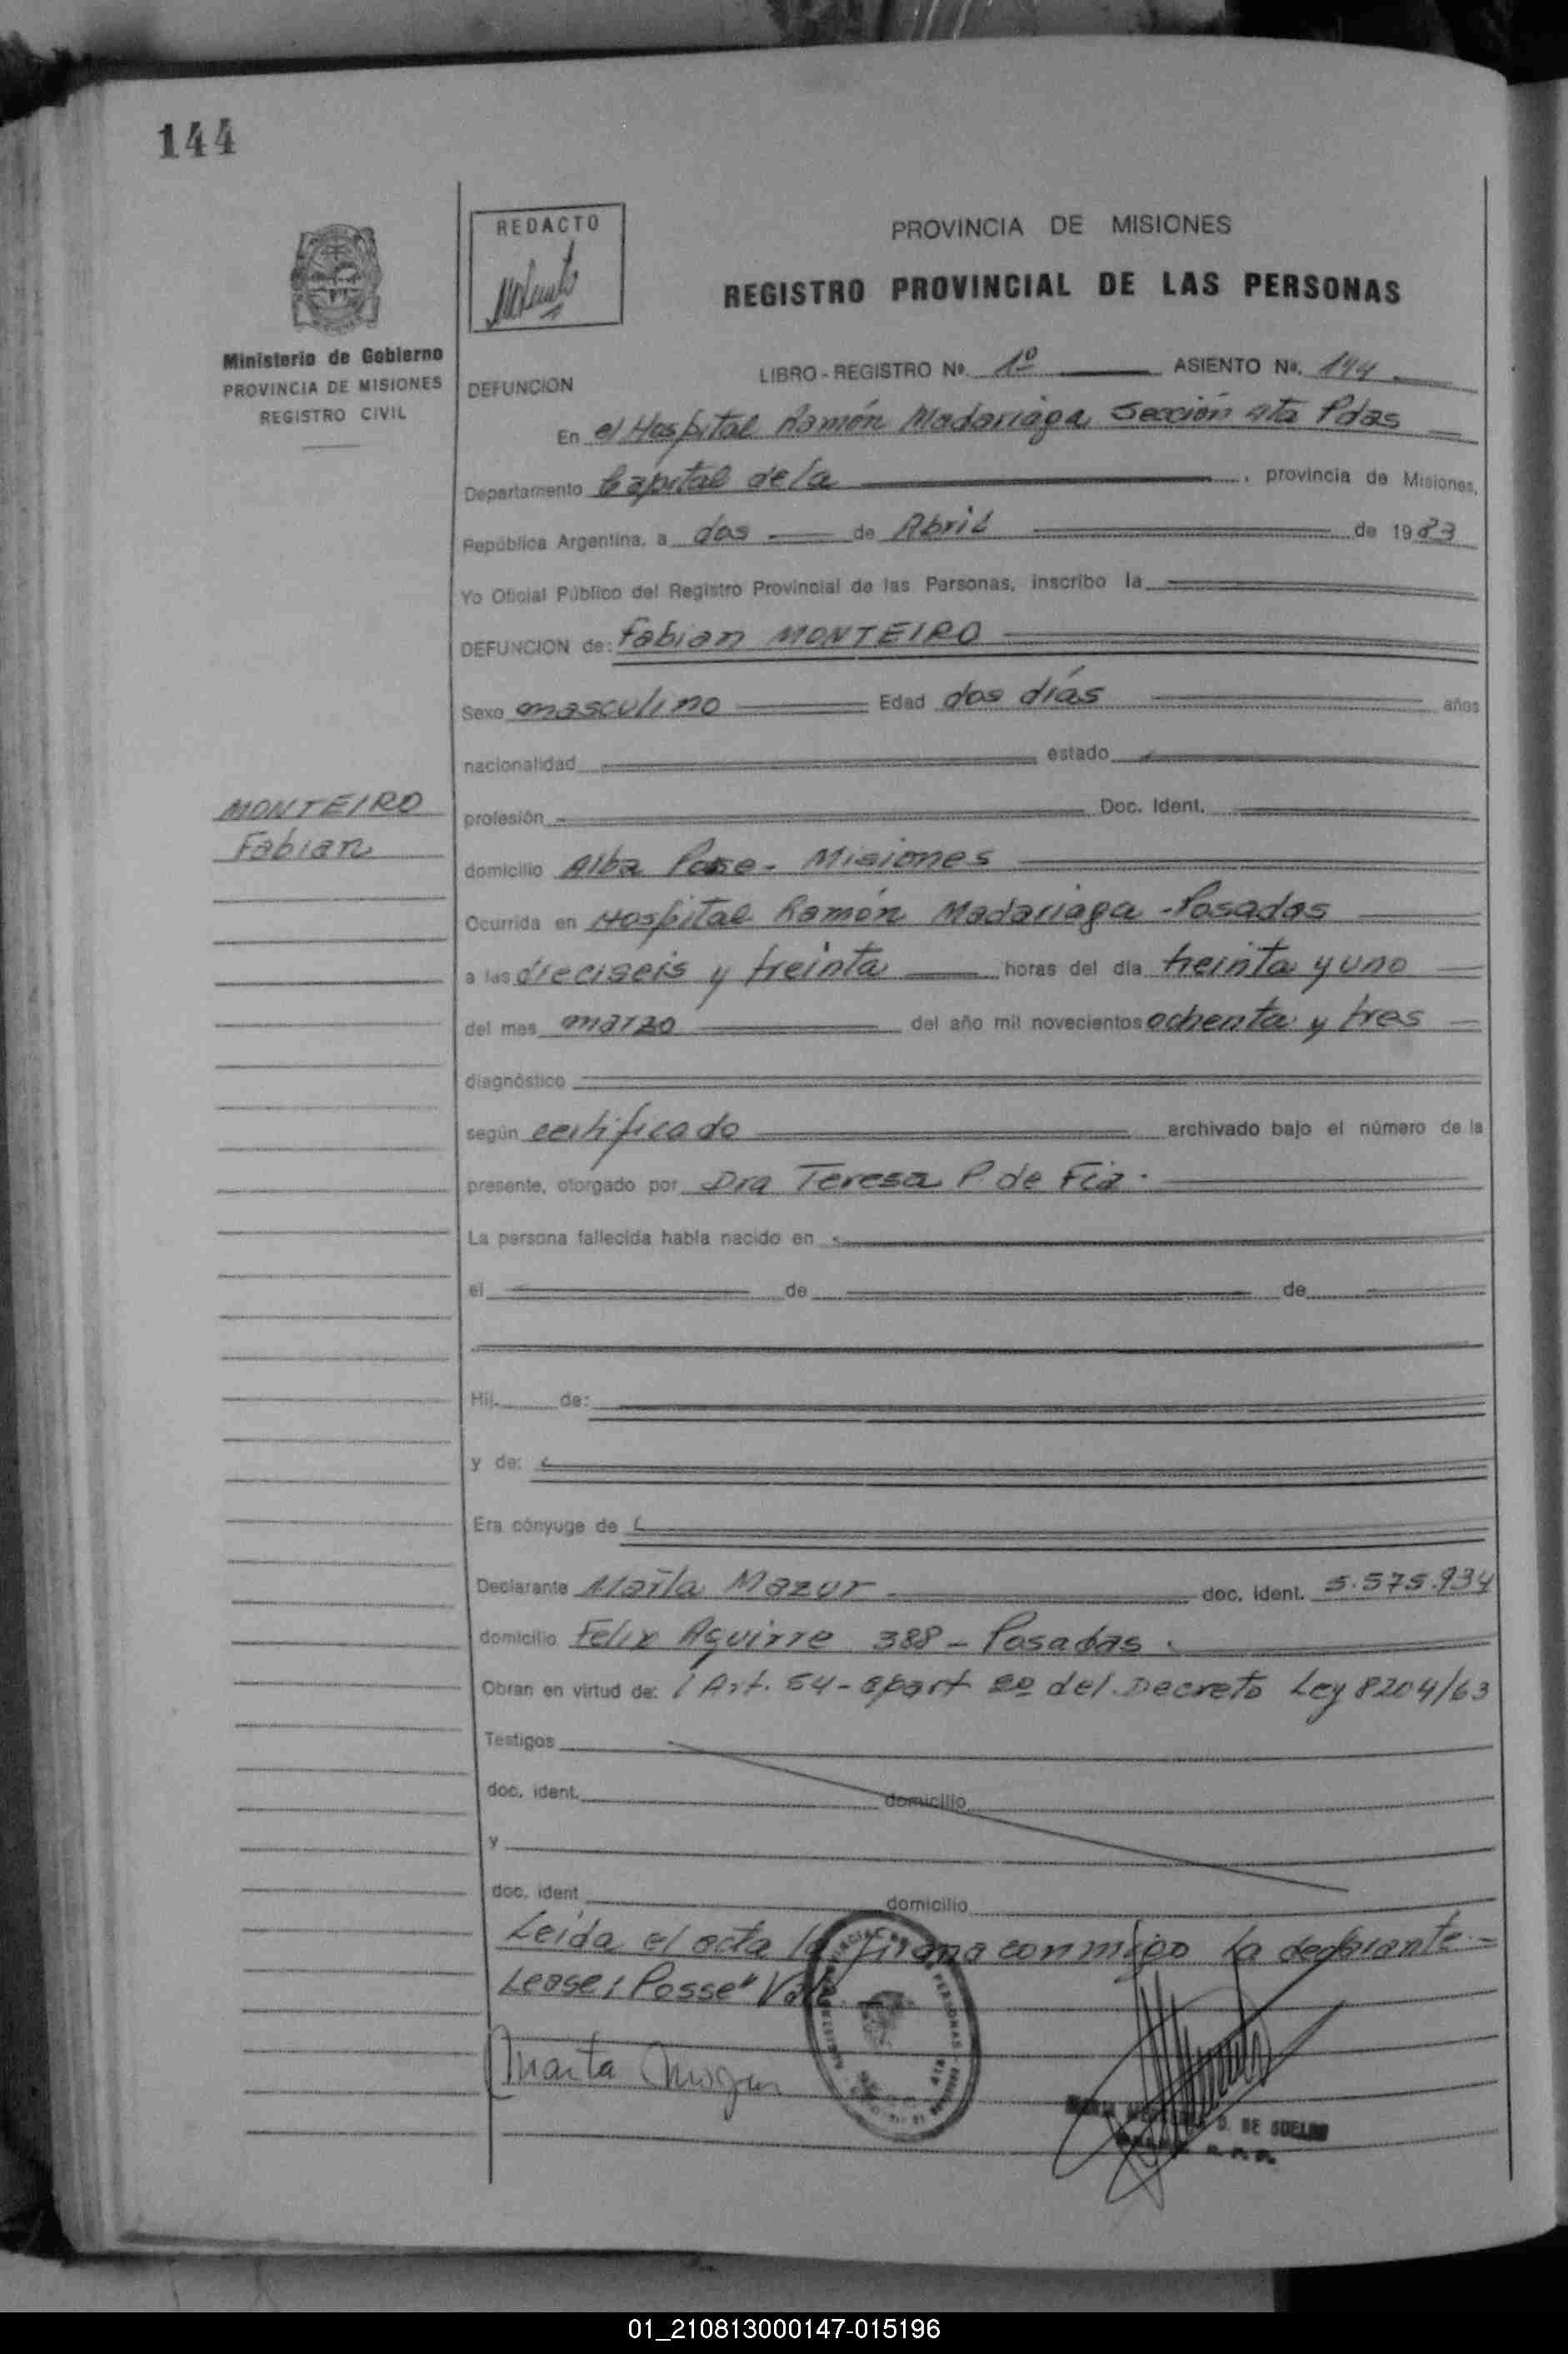 144
REDACTO
PROVINCIA DE MISIONES
REGISTRO PROVINCIAL DE LAS PERSONAS
Ministerio de Gobierno
PROVINCIA DE MISIONES
REGISTRO CIVIL
LIBRO - REGISTRO Nº. 1º ASIENTO Nº. 144
DEFUNCION
En el Hospital Ramón Madariaga Sección 4ta Pdas
Departamento Capital de la , provincia de Misiones,
República Argentina, a dos de Abril de 1983
Yo Oficial Público del Registro Provincial de las Personas, inscribo la
DEFUNCION de: Fabian MONTEIRO
Sexo masculino Edad dos días años
nacionalidad estado
MONTEIRO
Fabian
profesión Doc. Ident.
domicilio Alba Pose - Misiones
Ocurrida en Hospital Ramón Madariaga - Posadas
a las dieciseis y treinta horas del día treinta y uno
del mes marzo del año mil novecientos ochenta y tres
diagnóstico
según certificado archivado bajo el número de la
presente, otorgado por Dra Teresa P. de Fiz.
La persona fallecida había nacido en
el de de
Hij de:
y de:
Era cónyuge de
Declarante Marta Mazur doc. ident. 5.575.934
domicilio Felix Aguirre 388 - Posadas.
Obran en virtud de: Art. 64 - apart 2º del Decreto Ley 8204/63
Testigos
doc. ident. domicilio
y
doc. ident domicilio
Leída el acta la firma conmigo la declarante.-
Lease: "Posse" Vale.
Marta
D. DE